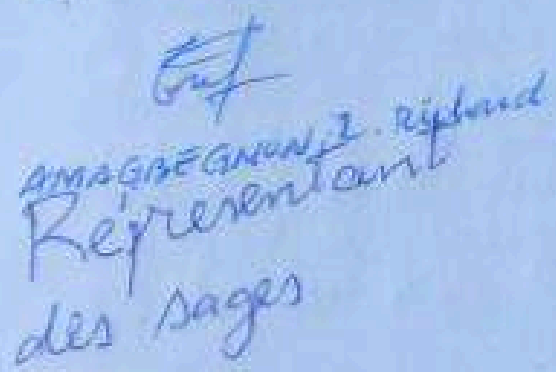 AMAGBEGNON, I. richard
Représentant
des sages